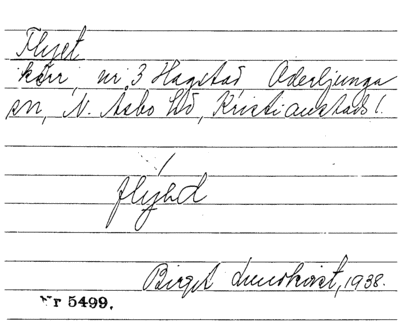 Flyet
kärr, nr 3 Hagstad, Oderljunga
sn, N. Åsbo hd, Kristianstads l.
flýəd
Birget Lundkvist, 1938.
Nr 5499.